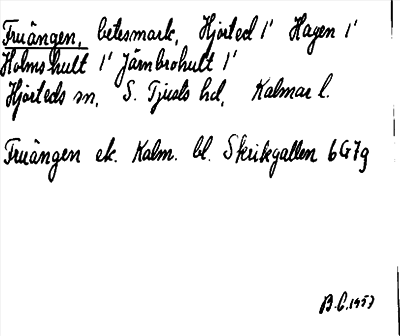 Fruängen, betesmark, Hjorted 1' Hagen 1'
Holmshult 1' Järnbrohult 1'
Hjorteds sn, S. Tjusts hd, Kalmar l.
Fruängen ek. Kalm. bl. Skrikgallen 6G7g
B.C. 1957